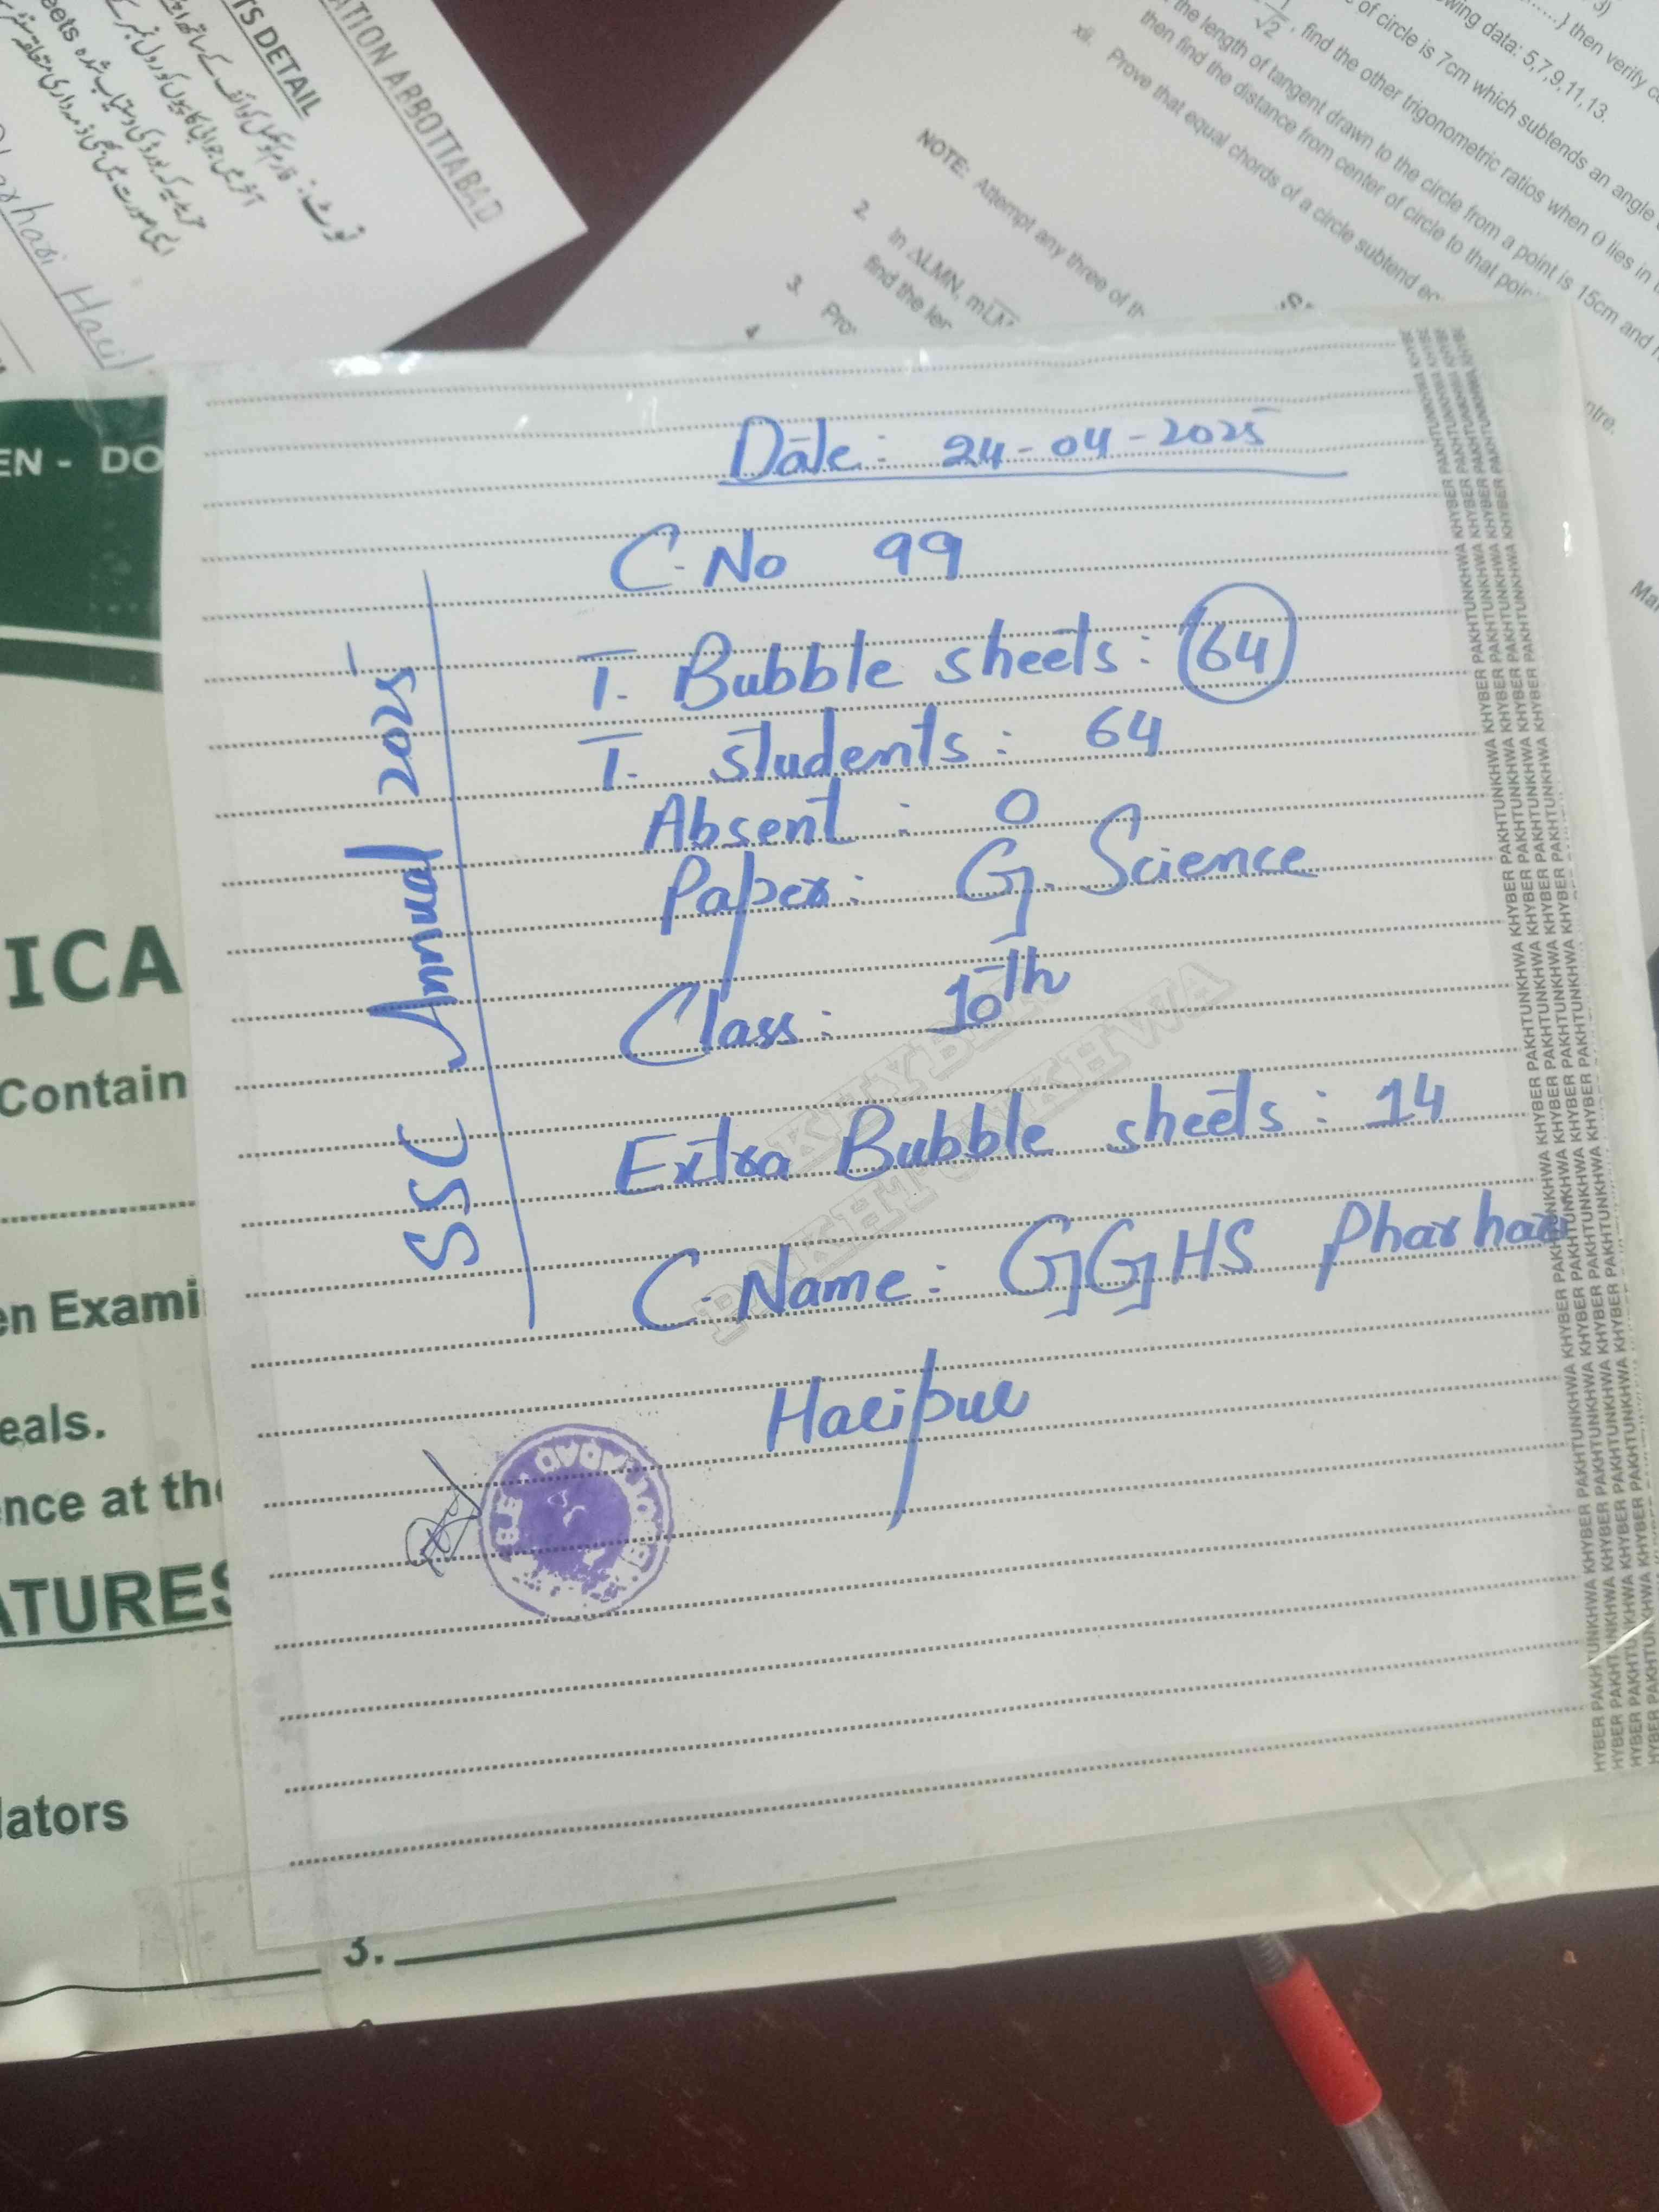 TION ABBOTTABAD
TS DETAIL
نوٹ:
eets
Haripur
NOTE: Attempt any three of th
2. In ΔLMN, m
find the len
3. Pro
4
wing data: 5,7,9,11,13.
} then verify
of circle is 7cm which subtends an angle
1/√2, find the other trigonometric ratios when θ lies in
the length of tangent drawn to the circle from a point is 15cm and
then find the distance from center of circle to that poin
xii. Prove that equal chords of a circle subtend eq
ntre.
Mar
EN - DO
ICA
Contain
en Exami
eals.
nce at the
ATURES
lators
3.
Date: 24-04-2025
C.No 99
T. Bubble sheets: 64
T. students: 64
Absent: 0
Paper: G. Science
Class: 10th
Extra Bubble sheets: 14
C.Name: GGHS Pharhari
Haripur
SSC Annual 2025
KHYBER
PAKHTUNKHWA
KHYBER PAKHTUNKHWA KHYBER PAKHTUNKHWA KHYBER PAKHTUNKHWA